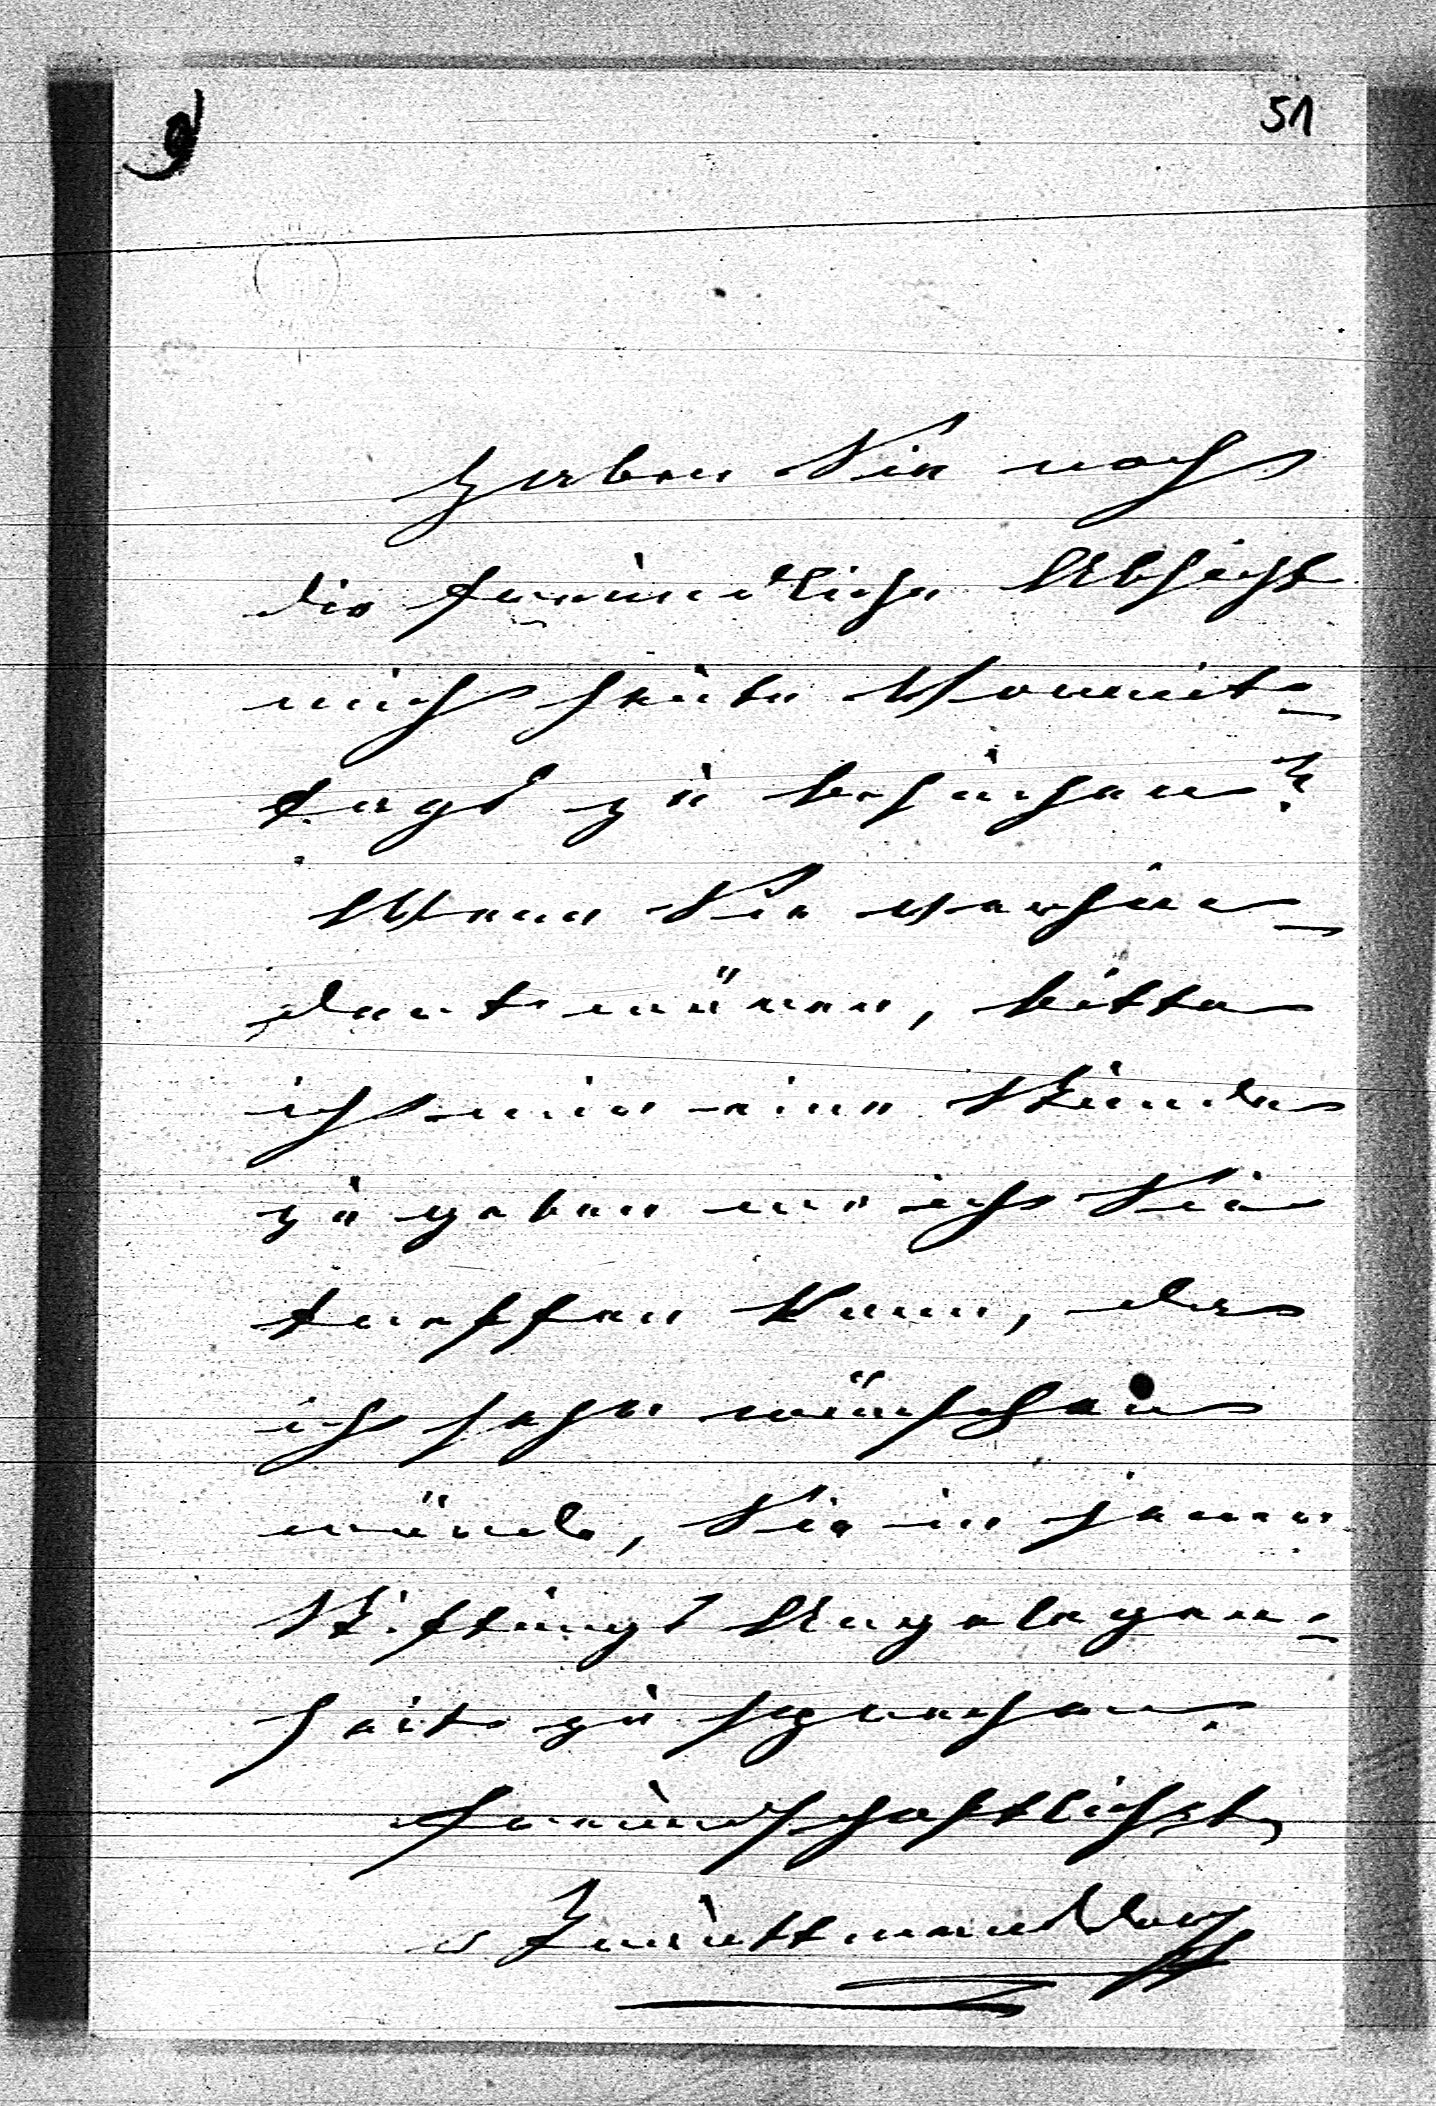 51
Haben Sie noch
die freundliche Absicht
mich heute Vormit-
tags zu besuchen?
Wenn Sie verhin-
dert wären, bitte
ich mir eine Stunde
zu geben wo ich Sie
treffen kann, da
ich sehr wünschen
würde, Sie in jener
Stiftungs Angelegen-
heit zu sprechen.
Freundschaftlichst